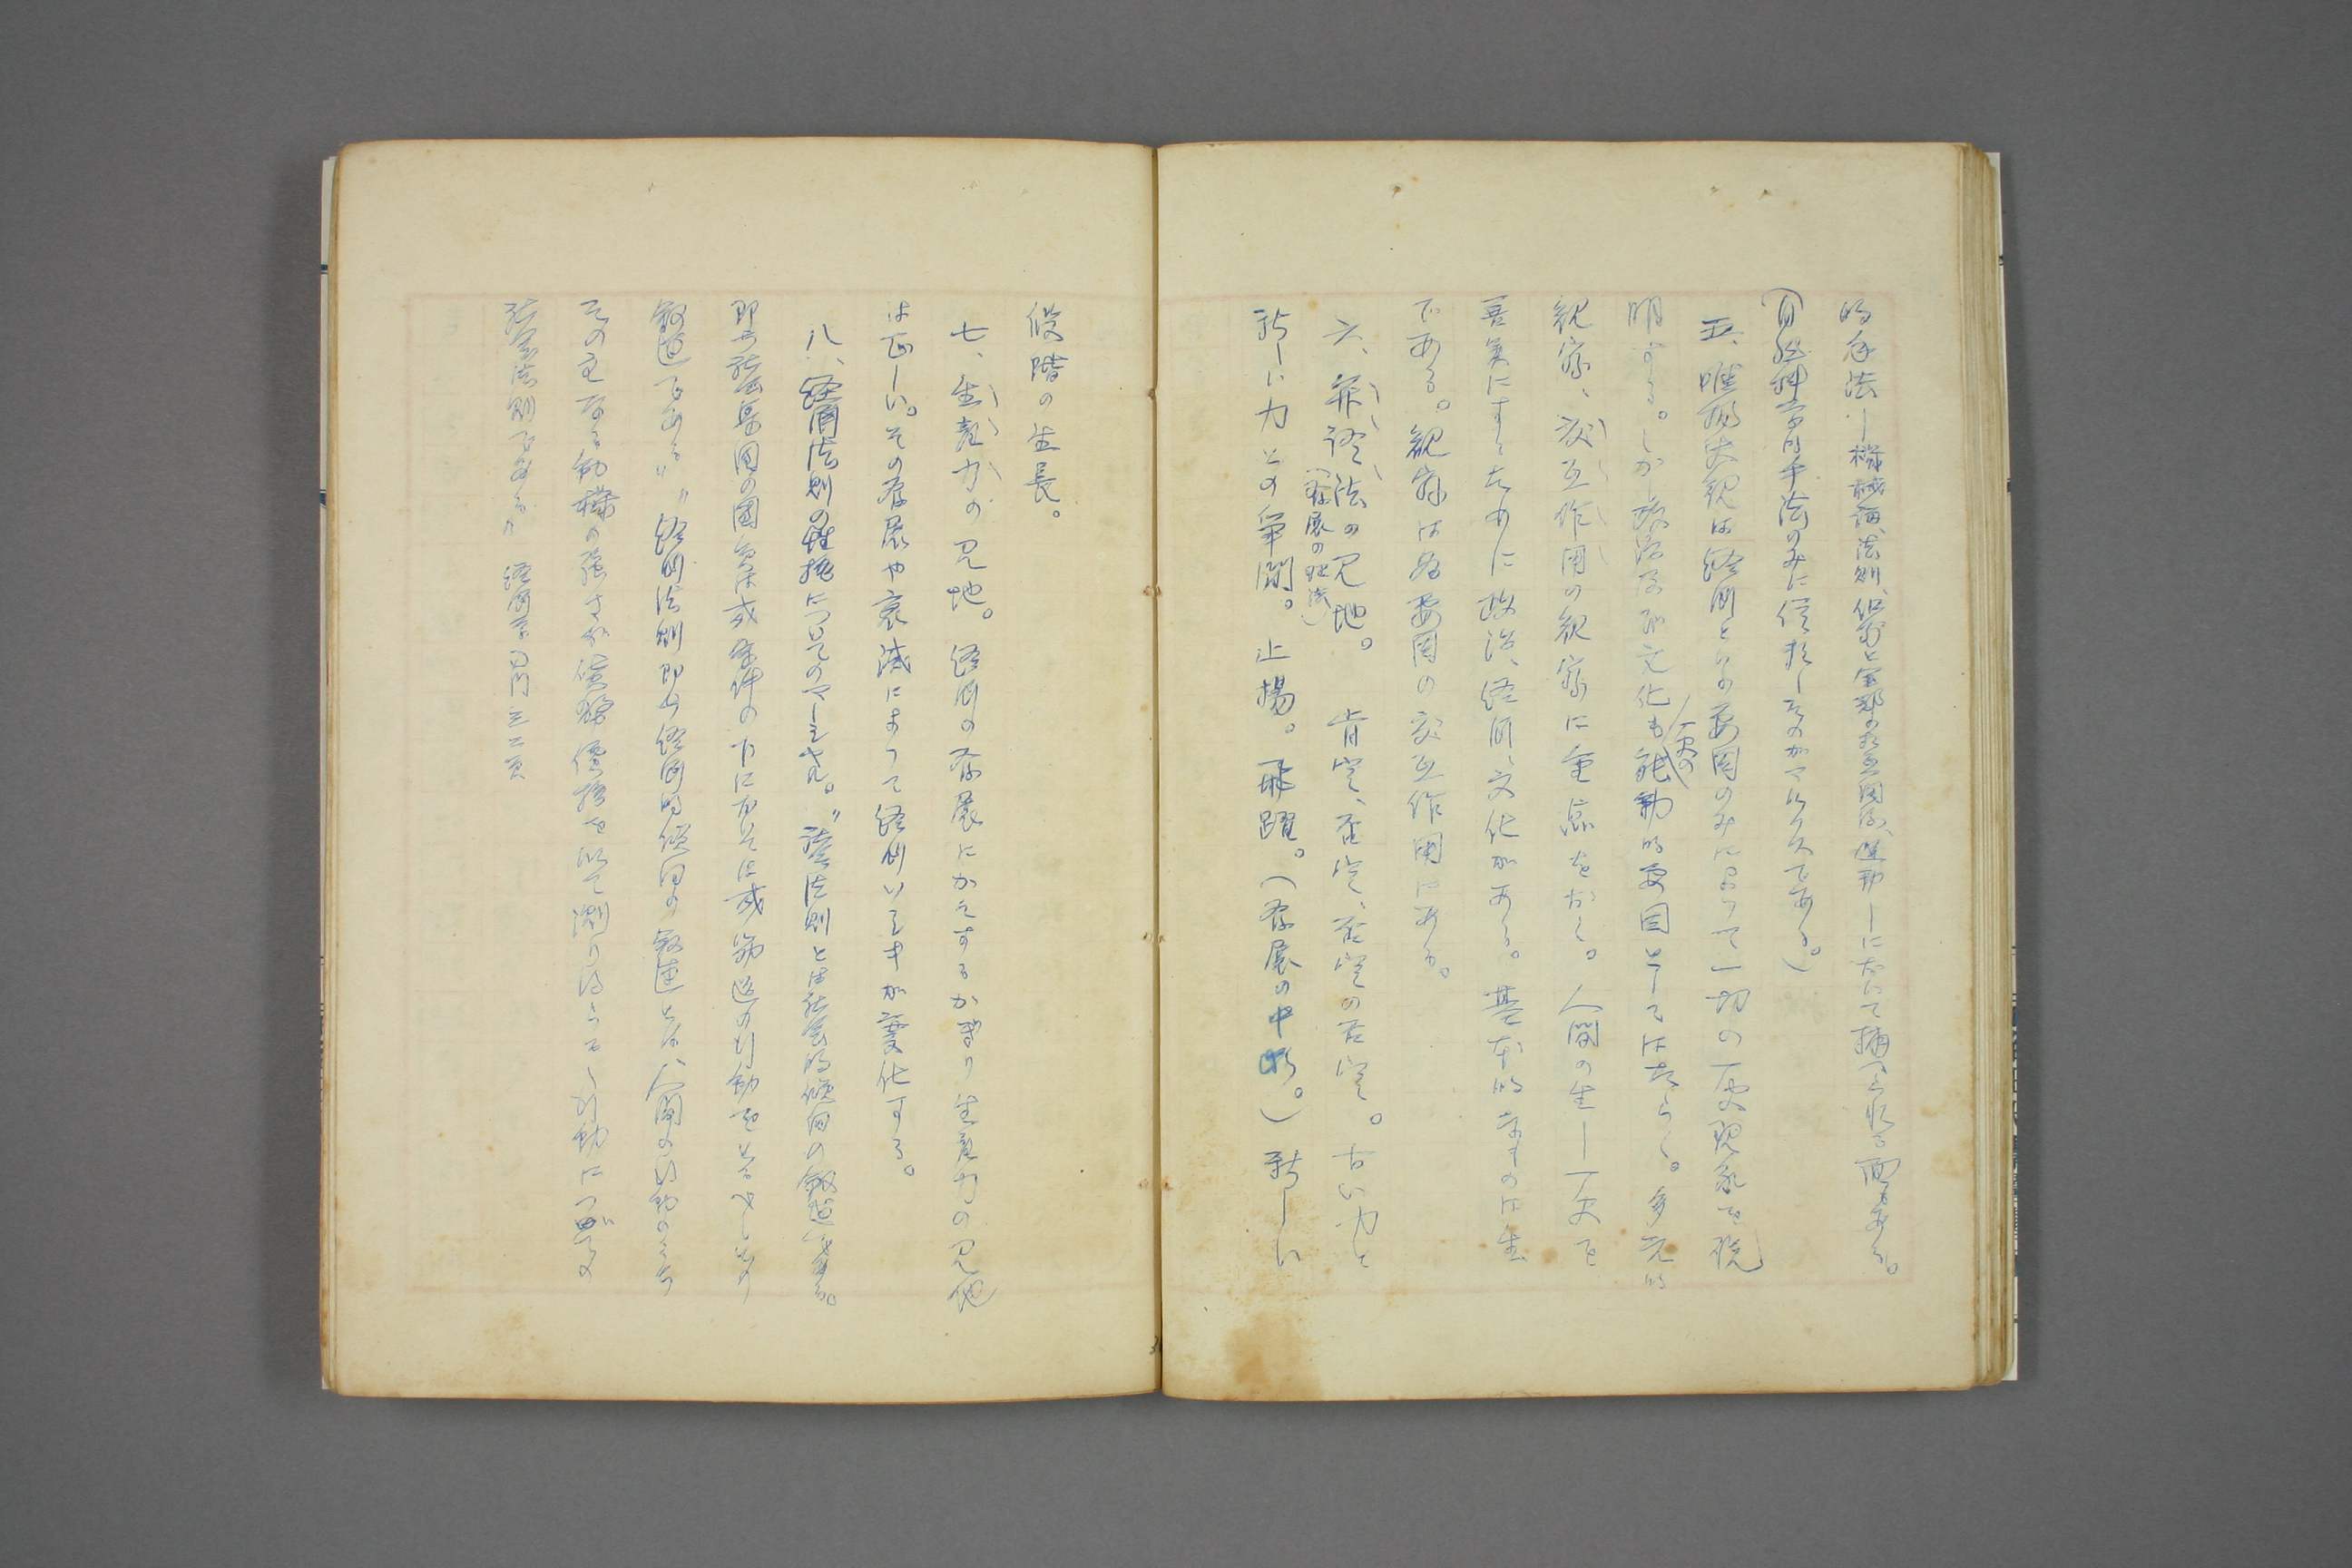 的手法 ー 機械論、法則、伝統と全部の相互関係、運動 ー において捕へられる面もある。
(自然科学的手法のみに信頼したのがマルクスである。)
五、唯物史観は経済といふ要因のみによって一切の歴史現象を説
明する。しかし政治及び文化も歴史の能動的要因としてはたらく。多元的
観察、交互作用の観察に重点をおく。人間の生 ー 歴史を
善美にするために政治、経済、文化がある。基本的なものは生
である。観察は要因の交互作用にある。
六、弁証法の見地。肯定、否定、否定の否定。古い力と
(発展の理法)
新しい力との争闘。止揚。飛躍。(発展の中断。)新しい
段階の生長。
七、生産力の見地。経済の発展にかんするかぎり生産力の見地
は正しい。その発展や衰滅によって経済いへるすが変化する。
八、経済法則の性格についてのマーシャル。〝社会法則とは社会的傾向の叙述である。
即ち社会集団の団員が或条件の下においては或筋道の行動をとるべしとの
叙述である〟〝経済法則即ち経済的傾向の叙述とは、人間の行動のうち
その主なる動機の強さが貨幣価格を以て測り得らるる行動につ
社会法則である〟経済学 三二頁